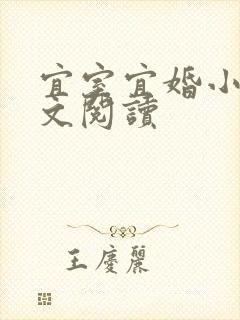 宜室宜婚小
文閱讀
王慶麗